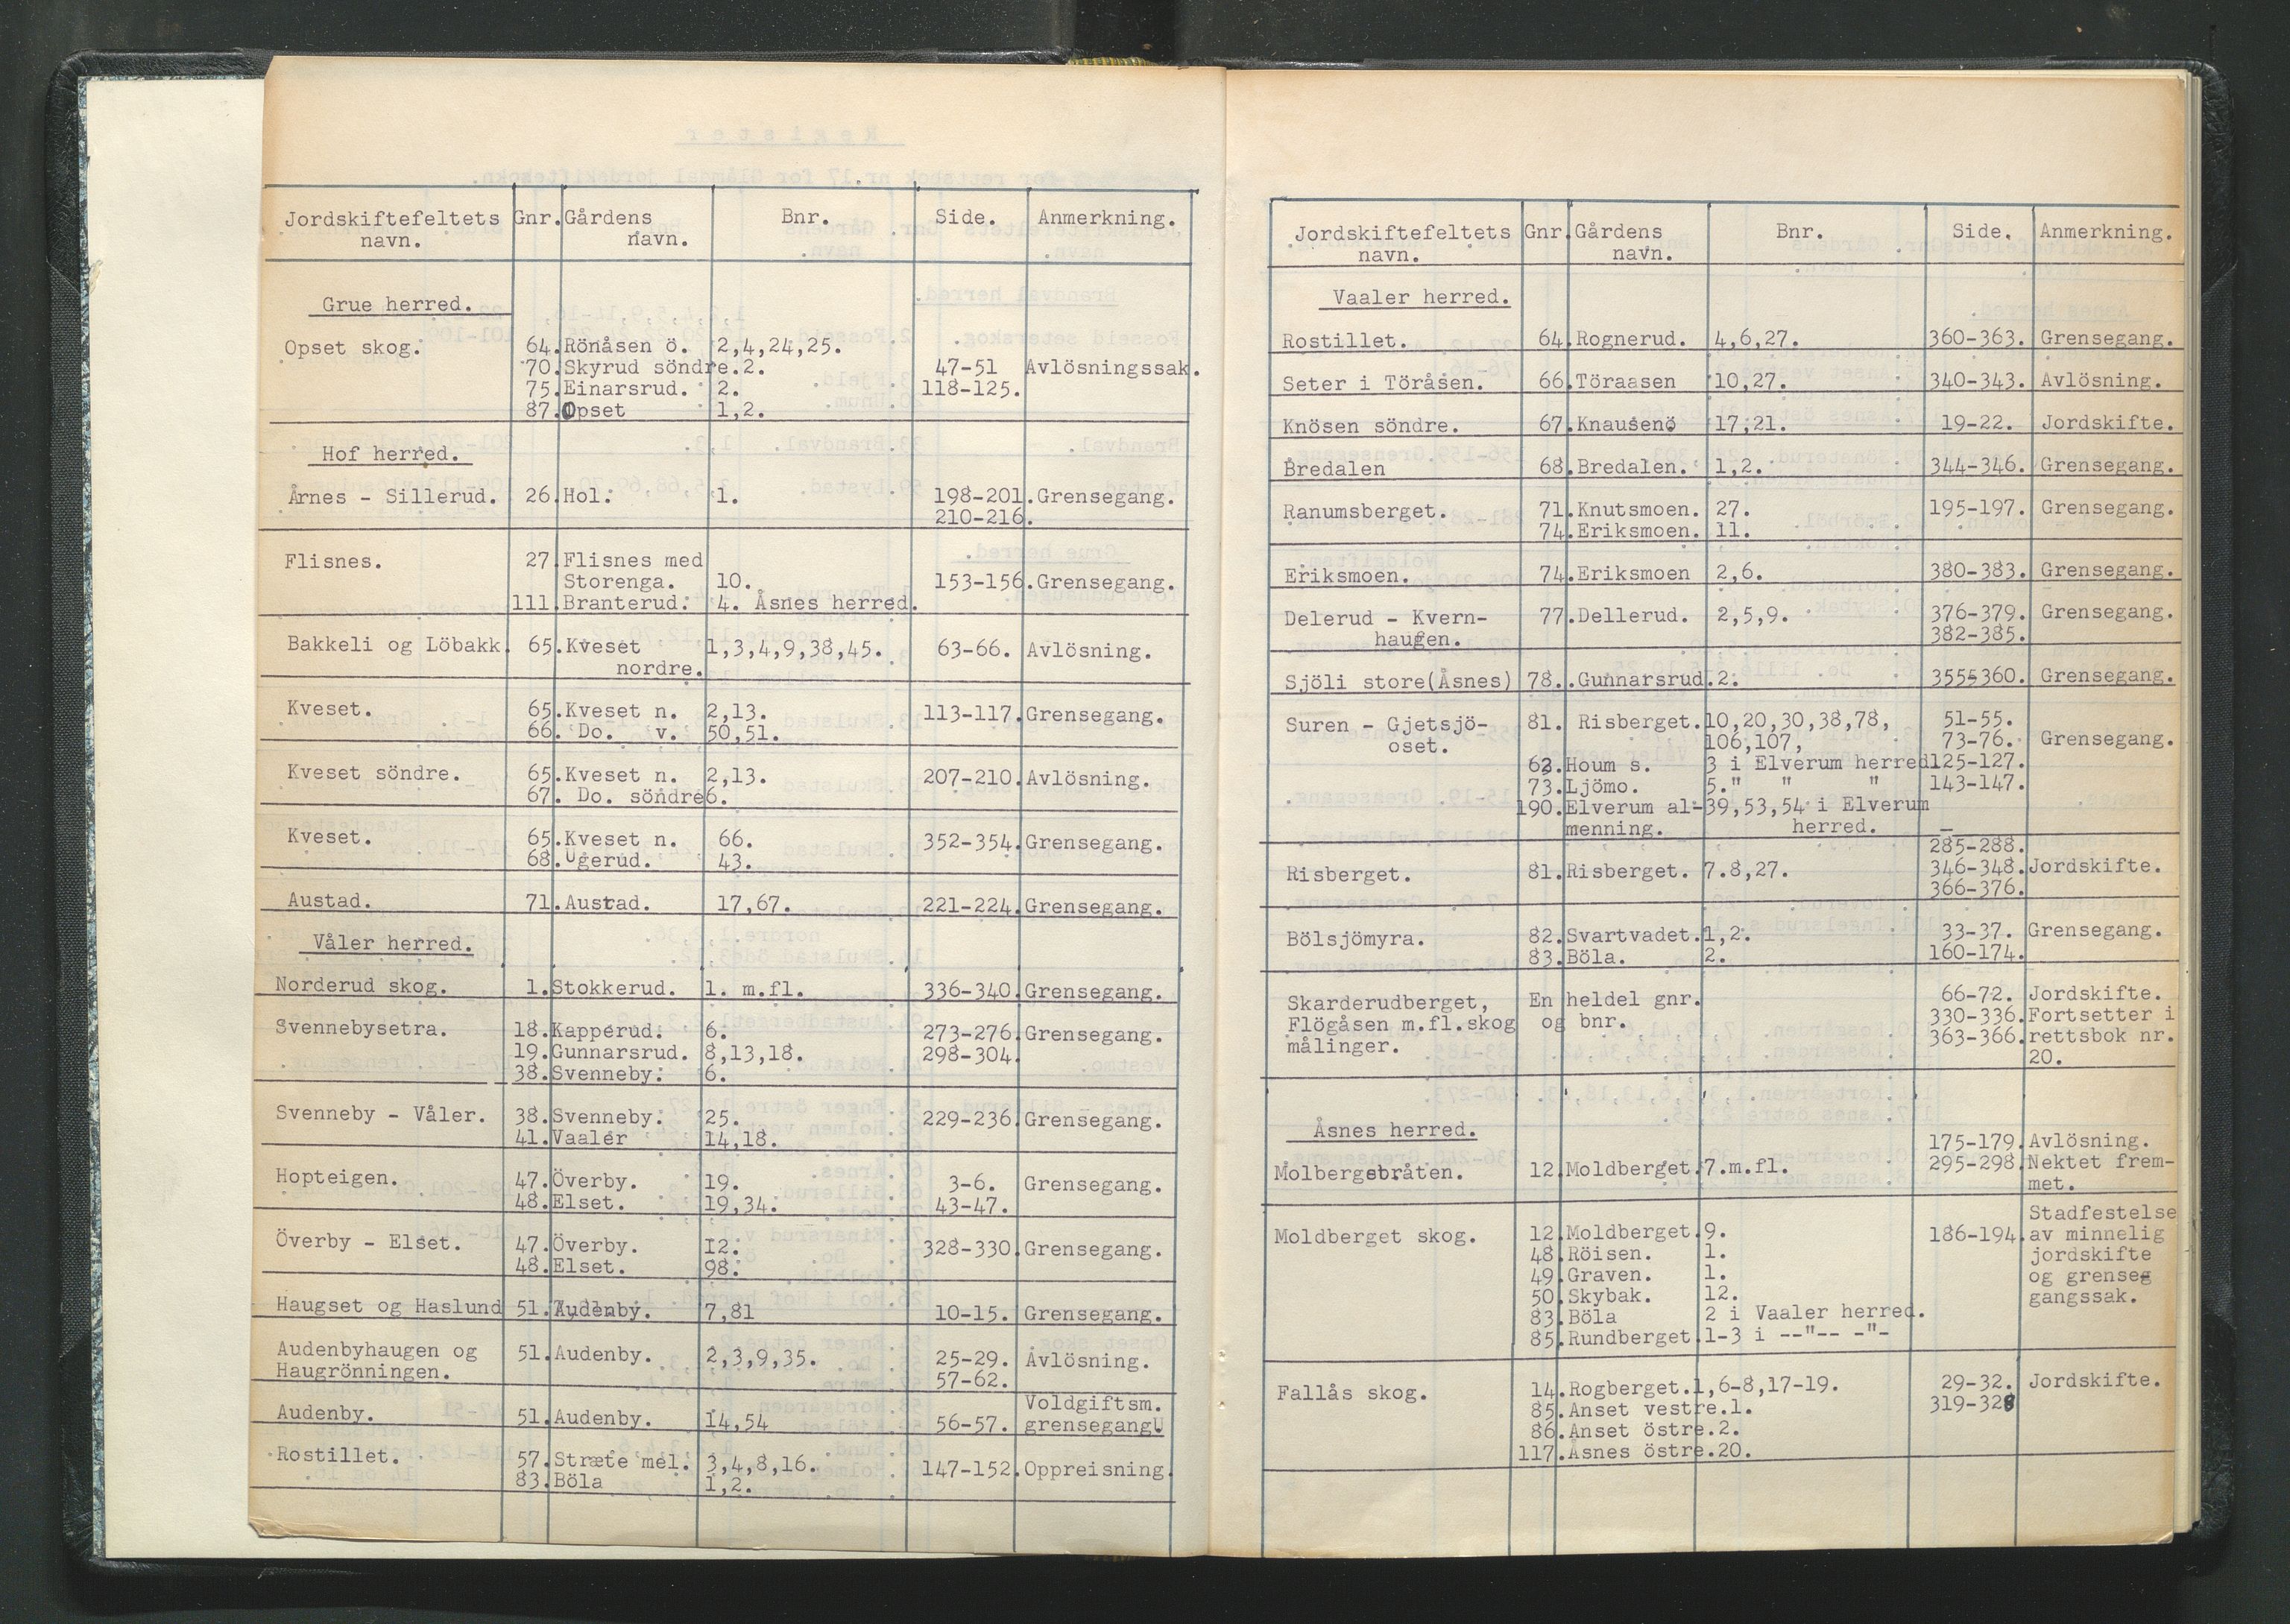 Jordskiftefeltets Gnr. Gårdens Bnr. Side. Anmerkning.
navn. navn.
Grue herred.
Opset skog. 64. Rönåsen ö. 2,4,24,25.
70. Skyrud söndre. 2. 47-51 Avlösningssak.
75. Einarsrud. 2. 118-125.
87. Opset 1,2.
Hof herred.
Årnes - Sillerud. 26. Hol. 1. 198-201. Grensegang.
210-216.
Flisnes. 27. Flisnes med
Storenga. 10. 153-156. Grensegang.
111. Branterud. 4. Åsnes herred.
Bakkeli og Löbakk. 65. Kveset 1,3,4,9,38,45. 63-66. Avlösning.
nordre.
Kveset. 65. Kveset n. 2,13. 113-117. Grensegang.
66. Do. v. 50,51.
Kveset söndre. 65. Kveset n. 2,13. 207-210. Avlösning.
67. Do. söndre 6.
Kveset. 65. Kveset n. 66. 352-354. Grensegang.
68. Ugerud. 43.
Austad. 71. Austad. 17,67. 221-224. Grensegang.
Våler herred.
Norderud skog. 1. Stokkerud. 1. m.fl. 336-340. Grensegang.
Svennebysetra. 18. Kapperud. 6. 273-276. Grensegang.
19. Gunnarsrud. 8,13,18. 298-304.
38. Svenneby. 6.
Svenneby - Våler. 38. Svenneby. 25. 229-236. Grensegang.
41. Vaaler 14,18.
Hopteigen. 47. Överby. 19. 3-6. Grensegang.
48. Elset. 19,34. 43-47.
Överby - Elset. 47. Överby. 12. 328-330. Grensegang.
48. Elset. 98.
Haugset og Haslund 51. Audenby. 7,81 10-15. Grensegang.
Audenbyhaugen og 51. Audenby. 2,3,9,35. 25-29. Avlösning.
Haugrönningen. 57-62.
Voldgiftsm.
Audenby. 51. Audenby. 14,54 56-57. grensegang
Rostillet. 57. Stræte mel. 3,4,8,16. 147-152. Oppreisning.
83. Böla 1,2.
Jordskiftefeltets Gnr. Gårdens Bnr. Side. Anmerkning.
navn. navn.
Vaaler herred.
Rostillet. 64. Rognerud. 4,6,27. 360-363. Grensegang.
Seter i Töråsen. 66. Töraasen 10,27. 340-343. Avlösning.
Knösen söndre. 67. Knausenö 17,21. 19-22. Jordskifte.
Bredalen 68. Bredalen. 1,2. 344-346. Grensegang.
Ranumsberget. 71. Knutsmoen. 27. 195-197. Grensegang.
74. Eriksmoen. 11.
Eriksmoen. 74. Eriksmoen 2,6. 380-383. Grensegang.
Delerud - Kvern- 77. Dellerud. 2,5,9. 376-379. Grensegang.
haugen. 382-385.
Sjöli store(Åsnes) 78. Gunnarsrud. 2. 355-360. Grensegang.
Suren - Gjetsjö- 81. Risberget. 10,20,30,38,78, 51-55.
oset. 106,107, 73-76. Grensegang.
62. Houm s. 3 i Elverum herred 125-127.
73. Ljömo. 5." " " 143-147.
190. Elverum al- 39,53,54 i Elverum
menning. herred. —
285-288.
Risberget. 81. Risberget. 7.8,27. 346-348. Jordskifte.
366-376.
Bölsjömyra. 82. Svartvadet. 1,2. 33-37. Grensegang.
83. Böla. 2. 160-174.
Skarderudberget, En heldel gnr. 66-72. Jordskifte.
Flögåsen m.fl.skog og bnr. 330-336. Fortsetter i
målinger. 363-366. rettsbok nr.
20.
Åsnes herred.
175-179. Avlösning.
Molbergsbråten. 12. Moldberget. 7.m.fl. 295-298. Nektet frem-
met.
Stadfestelse
Moldberget skog. 12. Moldberget. 9. 186-194. av minnelig
48. Röisen. 1. jordskifte
49. Graven. 1. og grenseg
50. Skybak. 12. gangssak.
83. Böla 2 i Vaaler herred.
85. Rundberget. 1-3 i --"-- -"-
Fallås skog. 14. Rogberget. 1,6-8,17-19. 29-32. Jordskifte.
85. Anset vestre. 1. 319-328
86. Anset östre. 2.
117. Åsnes östre. 20.